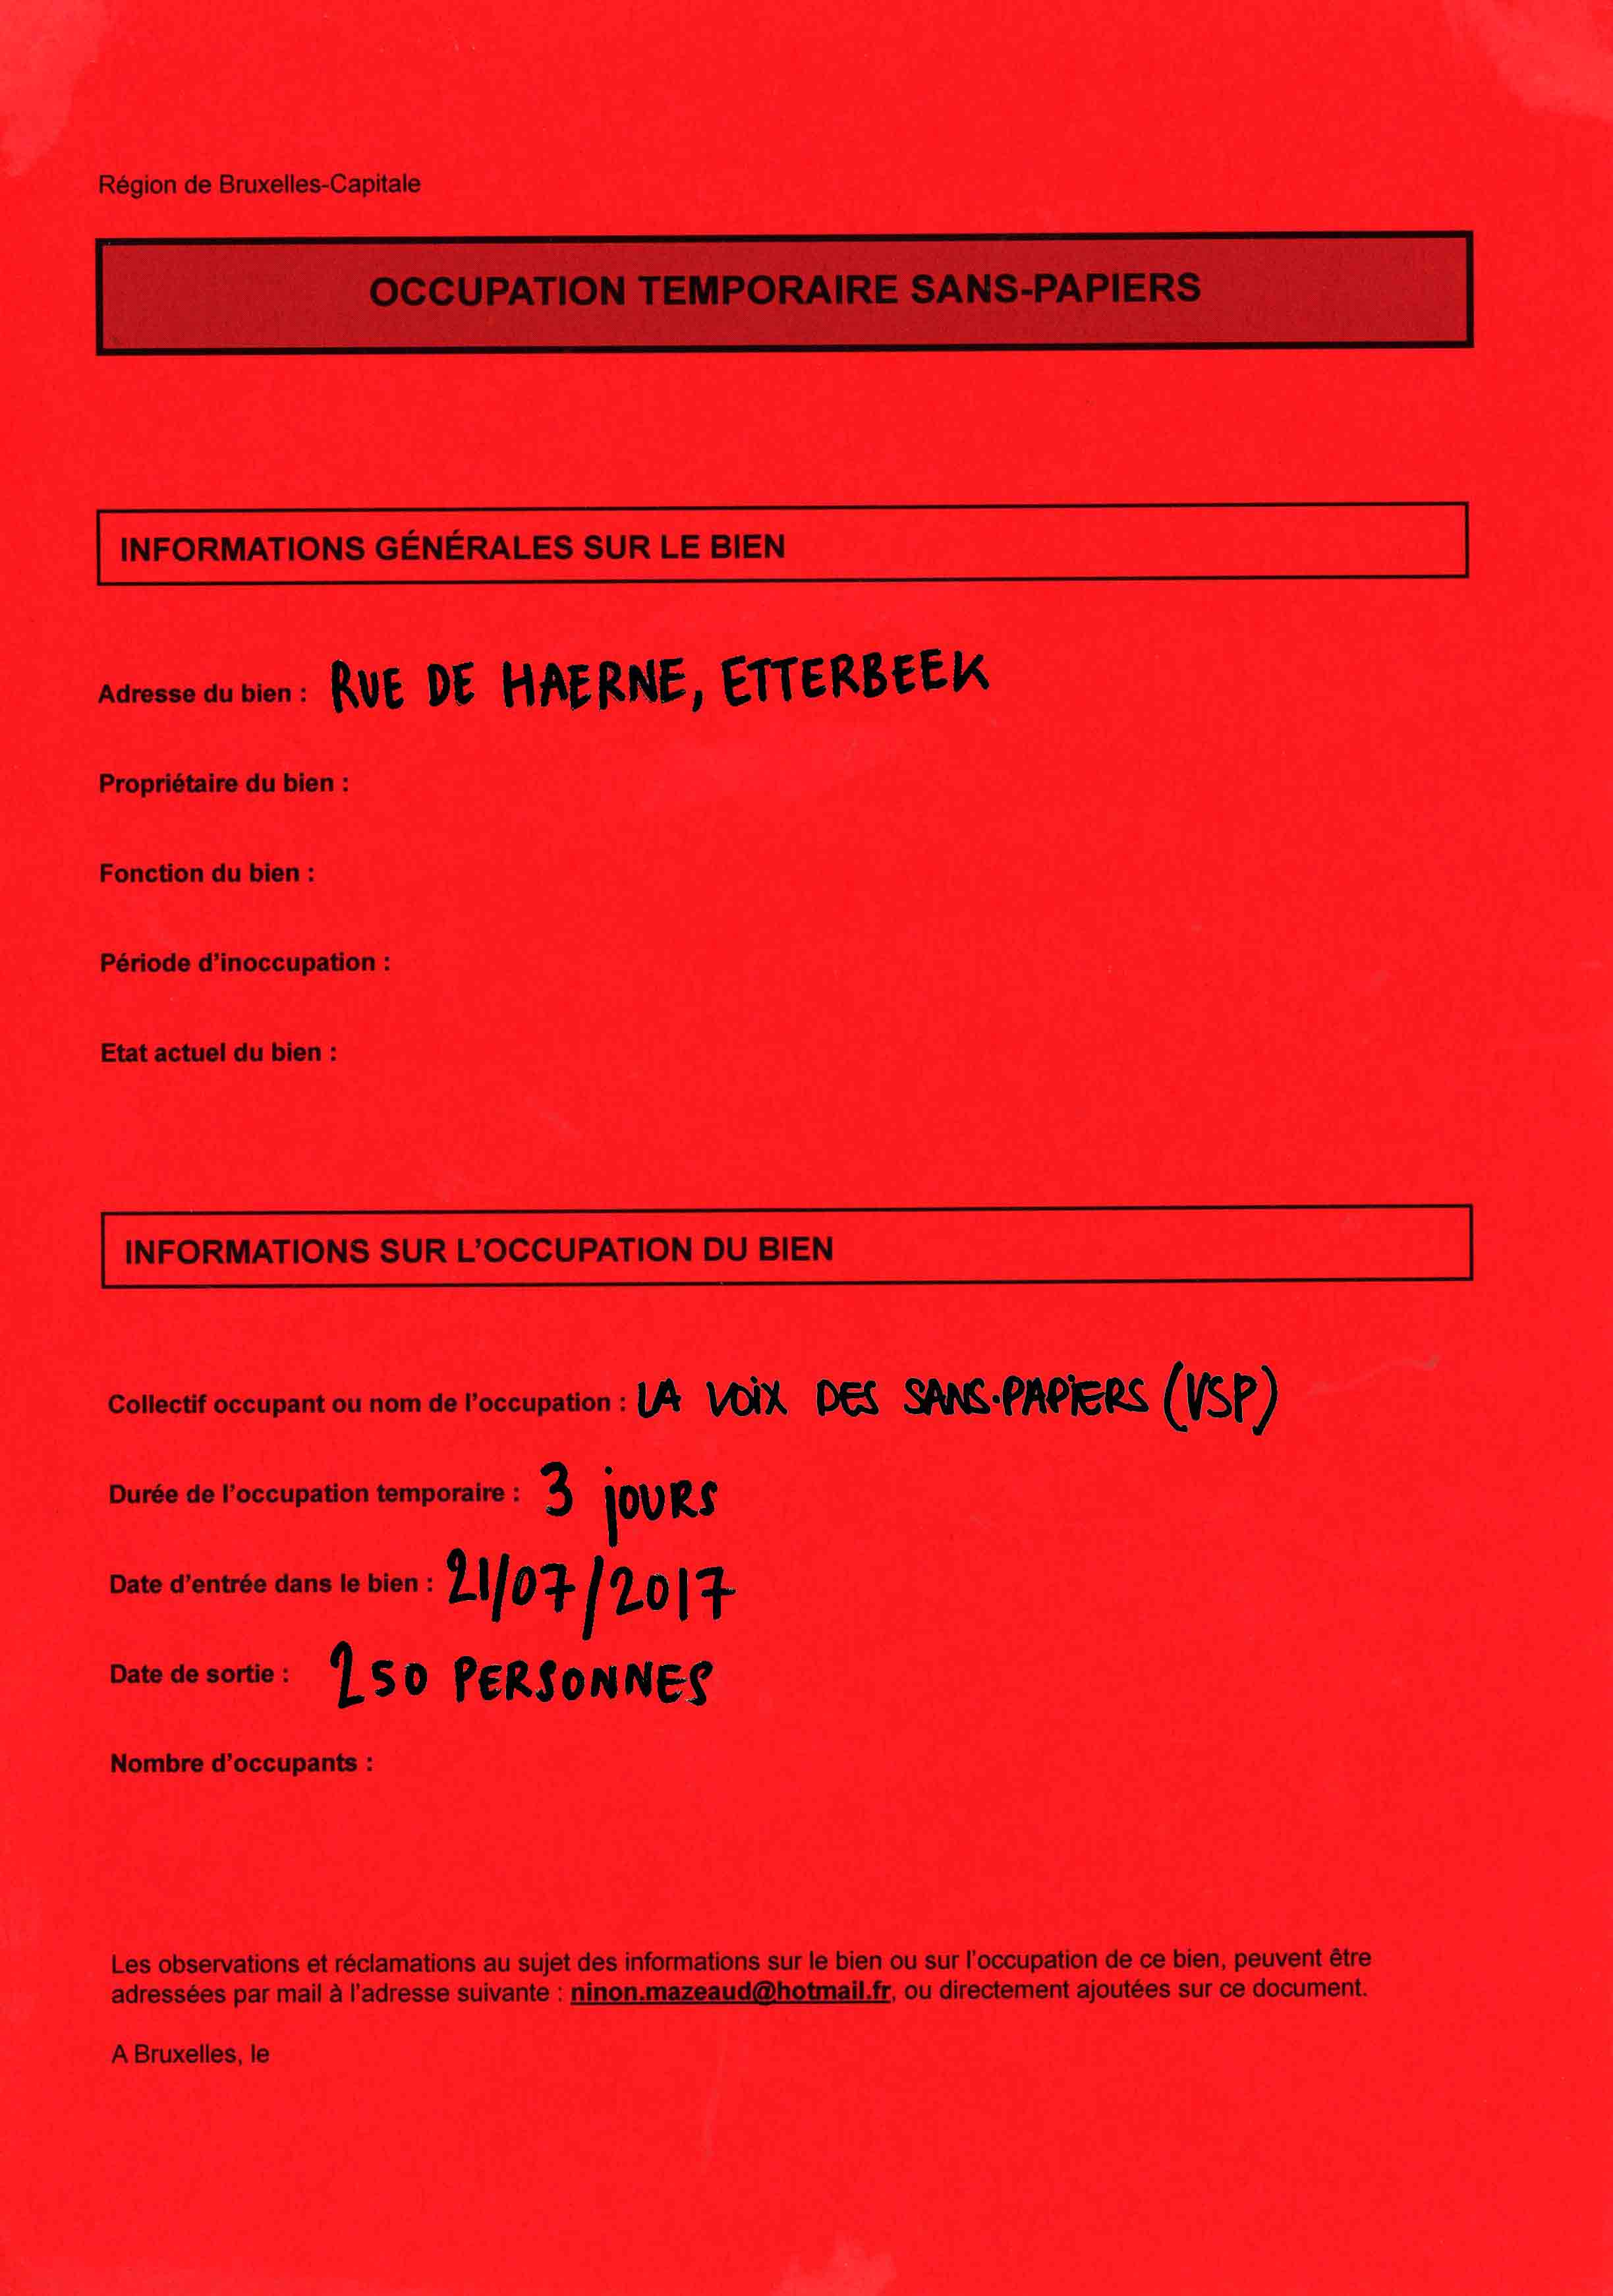 Région de Bruxelles-Capitale
OCCUPATION TEMPORAIRE SANS-PAPIERS
INFORMATIONS GÉNÉRALES SUR LE BIEN
Adresse du bien : RUE DE HAERNE, ETTERBEEK
Propriétaire du bien :
Fonction du bien :
Période d'inoccupation :
Etat actuel du bien :
INFORMATIONS SUR L'OCCUPATION DU BIEN
Collectif occupant ou nom de l'occupation : LA VOIX DES SANS-PAPIERS (VSP)
Durée de l'occupation temporaire : 3 JOURS
Date d'entrée dans le bien : 21/07/2017
Date de sortie : 250 PERSONNES
Nombre d'occupants :
Les observations et réclamations au sujet des informations sur le bien ou sur l'occupation de ce bien, peuvent être
adressées par mail à l'adresse suivante : ninon.mazeaud@hotmail.fr, ou directement ajoutées sur ce document.
A Bruxelles, le